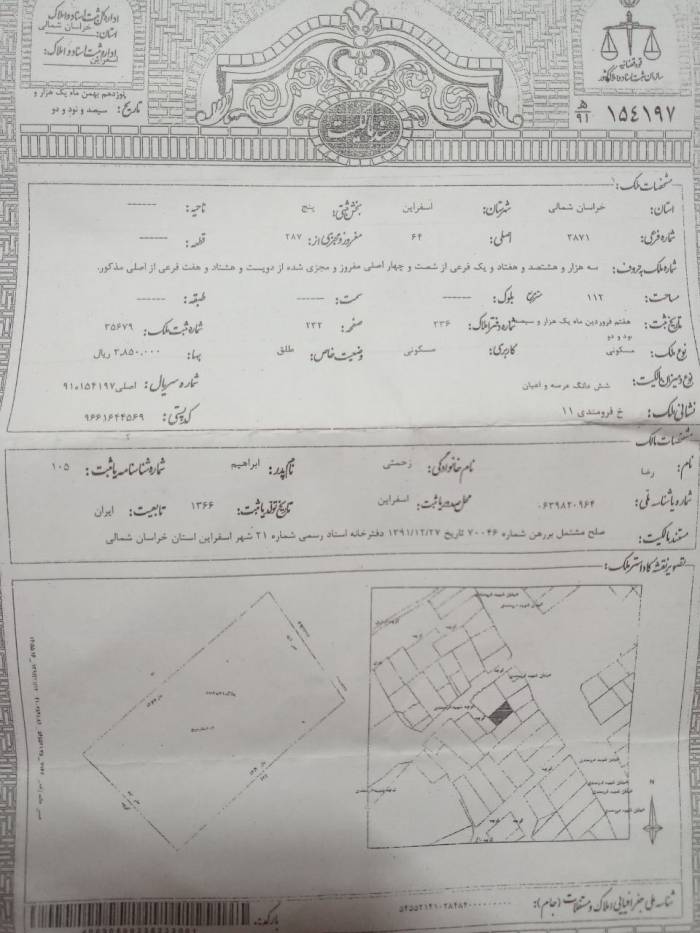 اداره کل ثبت اسناد و املاک
استان: خراسان شمالی
اداره ثبت اسناد و املاک:
اسفراین
تاریخ: پانزدهم بهمن ماه یک هزار و
سیصد و نود و دو
قوه قضائیه
سازمان ثبت اسناد و املاک کشور
ه‍/۹۱ ۱۵٤۱۹۷
سند مالکیت
مشخصات ملک:
استان: خراسان شمالی شهرستان: اسفراین بخش ثبتی: پنج ناحیه: ------
شماره فرعی: ۳۸۷۱ اصلی: ۶۴ مفروز و مجزی از: ۲۸۷ قطعه: ------
شماره ملک به حروف: سه هزار و هشتصد و هفتاد و یک فرعی از شصت و چهار اصلی مفروز و مجزی شده از دویست و هشتاد و هفت فرعی از اصلی مذکور.
مساحت: ۱۱۲ مترمربع بلوک: ------ سمت: ------ طبقه: ------
تاریخ ثبت: هفتم فروردین ماه یک هزار و سیصد و نود و دو شماره دفتر املاک: ۲۳۶ صفحه: ۲۳۲ شماره ثبت ملک: ۳۵۶۷۹
نوع ملک: مسکونی کاربری: مسکونی وضعیت خاص: طلق بها: ۳,۸۵۰,۰۰۰ ریال
نوع و میزان مالکیت: شش دانگ عرصه و اعیان شماره سریال: اصلی۹۱۰۱۵۴۱۹۷
نشانی ملک: خ فرومندی ۱۱ کدپستی: ۹۶۶۱۶۴۴۵۶۹
مشخصات مالک
نام: رضا نام خانوادگی: زحمتی نام پدر: ابراهیم شماره شناسنامه یا ثبت: ۱۰۵
شماره یا شناسه ملی: ۰۶۳۹۸۲۰۹۶۴ محل صدور یا ثبت: اسفراین تاریخ تولد یا ثبت: ۱۳۶۶ تابعیت: ایران
مستند مالکیت: صلح مشتمل بررهن شماره ۷۰۰۴۶ تاریخ ۱۳۹۱/۱۲/۲۷ دفترخانه اسناد رسمی شماره ۲۱ شهر اسفراین استان خراسان شمالی
تصویر نقشه کاداستر ملک:
خیابان شهید فرومندی
خیابان شهید فرومندی
کوچه
خیابان شهید فرومندی
کوچه شهید فرومندی
کوچه
کوچه
خیابان شهید فرومندی
خیابان شهید فرومندی
خیابان شهید فرومندی
کوچه
کوچه
N
شناسه ملی جغرافیایی املاک و مستغلات (جام):
بارکد: